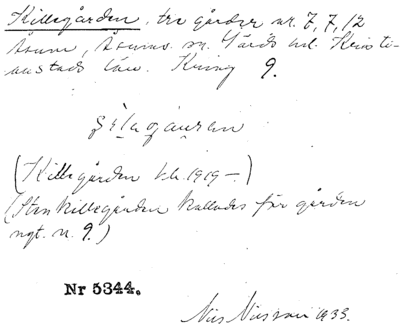 Killegården, tre gårdar nr. 7, 7, 12
Åsum, Åsums sn. Gärds hd. Kristi-
anstads län. Kring 9.
(Killegården kb. 1919–)
(Sten killegården kallades för gården
ngt. n. 9.)
Nr 5344.
Nils Nilsson 1933.